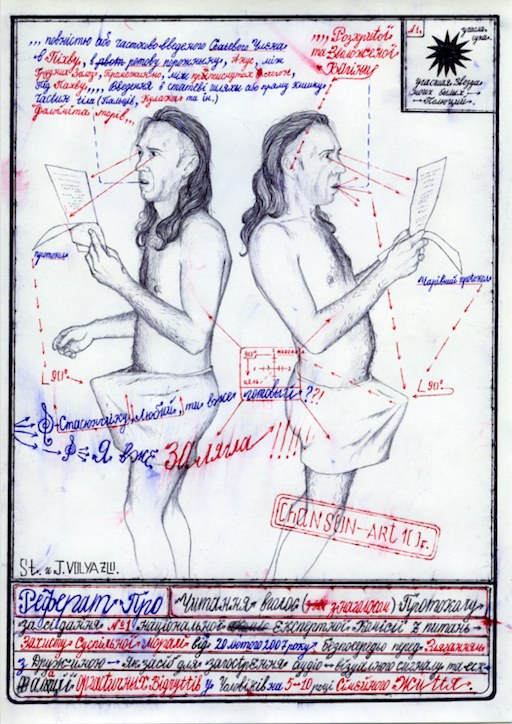 ,,, повністю або частково введеного Статевого Члена
в Піхву, в рот, ротову порожнину, Анус, між
Грудних Залоз, Промежину, між притиснутих
Під Пахву,,,, Введення в статеві шляхи або пряму кишку
Частин тіла (Пальців, Кулака та ін.)
Фалоіміта торів,,,
,,,, Розкритої
та Зволоженої
Вагіни
№1.
угасла
сука.
угасшая Звезда
моих былых
Поллюций
протокол
Чарівний протокол
90°
90°
90°
ЦЕЛЬ
Стасюнчику, любий, ти вже готовый ??!
Я вже ЗАлягла !!!!
Chanson-Art 10г.
St. и J. VOLYAZLO.
Реферат Про Читання вголос (з наголосом) Протоколу
засідання №1 Національної Експертної Комісії З питань
Захисту Суспільної Моралі від 20 лютого 2007 року безпосередньо перед Гляганням
з Дружиною Як засіб для загострення аудіо-візуального сигналу та ек
фрикційних Відчуттів у Чоловіків на 5-10 році Сімейного Життя.